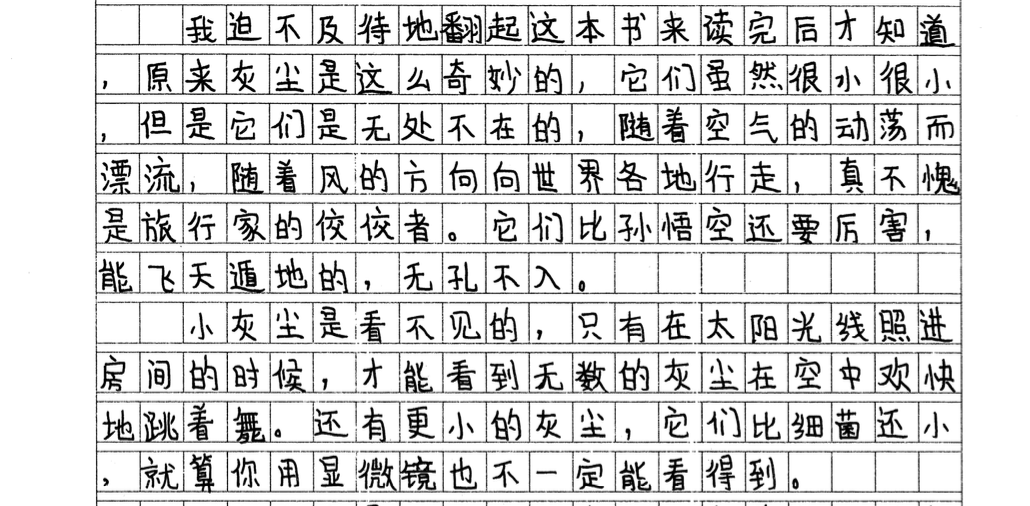 我迫不及待地翻起这本书来读完后才知道
，原来灰尘是这么奇妙的，它们虽然很小很小
，但是它们是无处不在的，随着空气的动荡而
漂流，随着风的方向向世界各地行走，真不愧
是旅行家的佼佼者。它们比孙悟空还要厉害，
能飞天遁地的，无孔不入。
小灰尘是看不见的，只有在太阳光线照进
房间的时候，才能看到无数的灰尘在空中欢快
地跳着舞。还有更小的灰尘，它们比细菌还小
，就算你用显微镜也不一定能看得到。